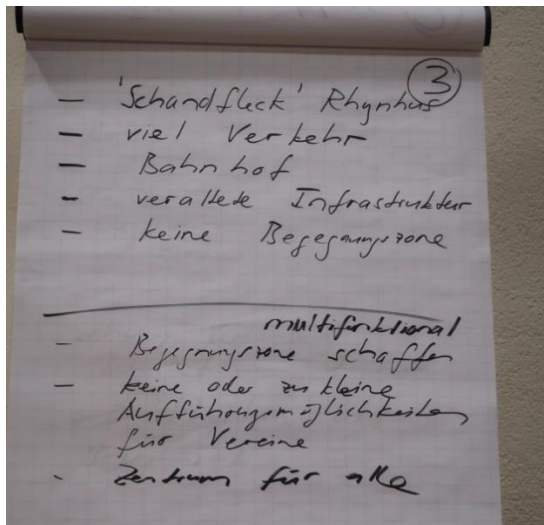 3
- 'Schandfleck' Rhynhus
- viel Verkehr
- Bahnhof
- veraltete Infrastruktur
- keine Begegnungszone
multifunktional
- Begegnungszone schaffen
- keine oder zu kleine
Aufführungsmöglichkeiten
für Vereine
- Zentrum für alle